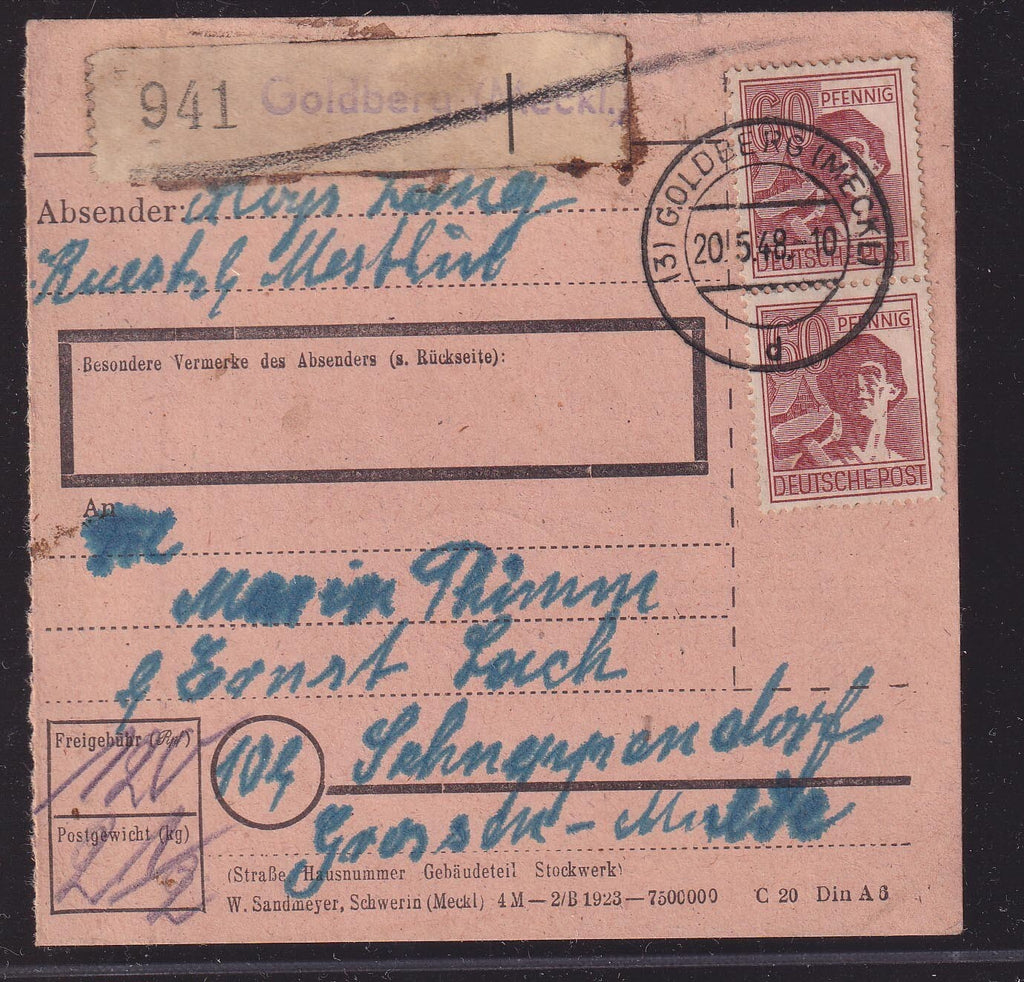 941 Goldberg (Meckl.)
60 PFENNIG
DEUTSCHE POST
(3) GOLDBERG (MECKL)
20.5.48.-10
d
60 PFENNIG
DEUTSCHE POST
Absender: Aloys Lang
Mestlin
Besondere Vermerke des Absenders (s. Rückseite):
An
Thimm
Ernst Lach
Freigebühr (Rpf)
120
10a Schneppendorf
Postgewicht (kg)
(Straße Hausnummer Gebäudeteil Stockwerk)
W. Sandmeyer, Schwerin (Meckl) 4 M — 2/B 1923 — 7500000 C 20 Din A 6